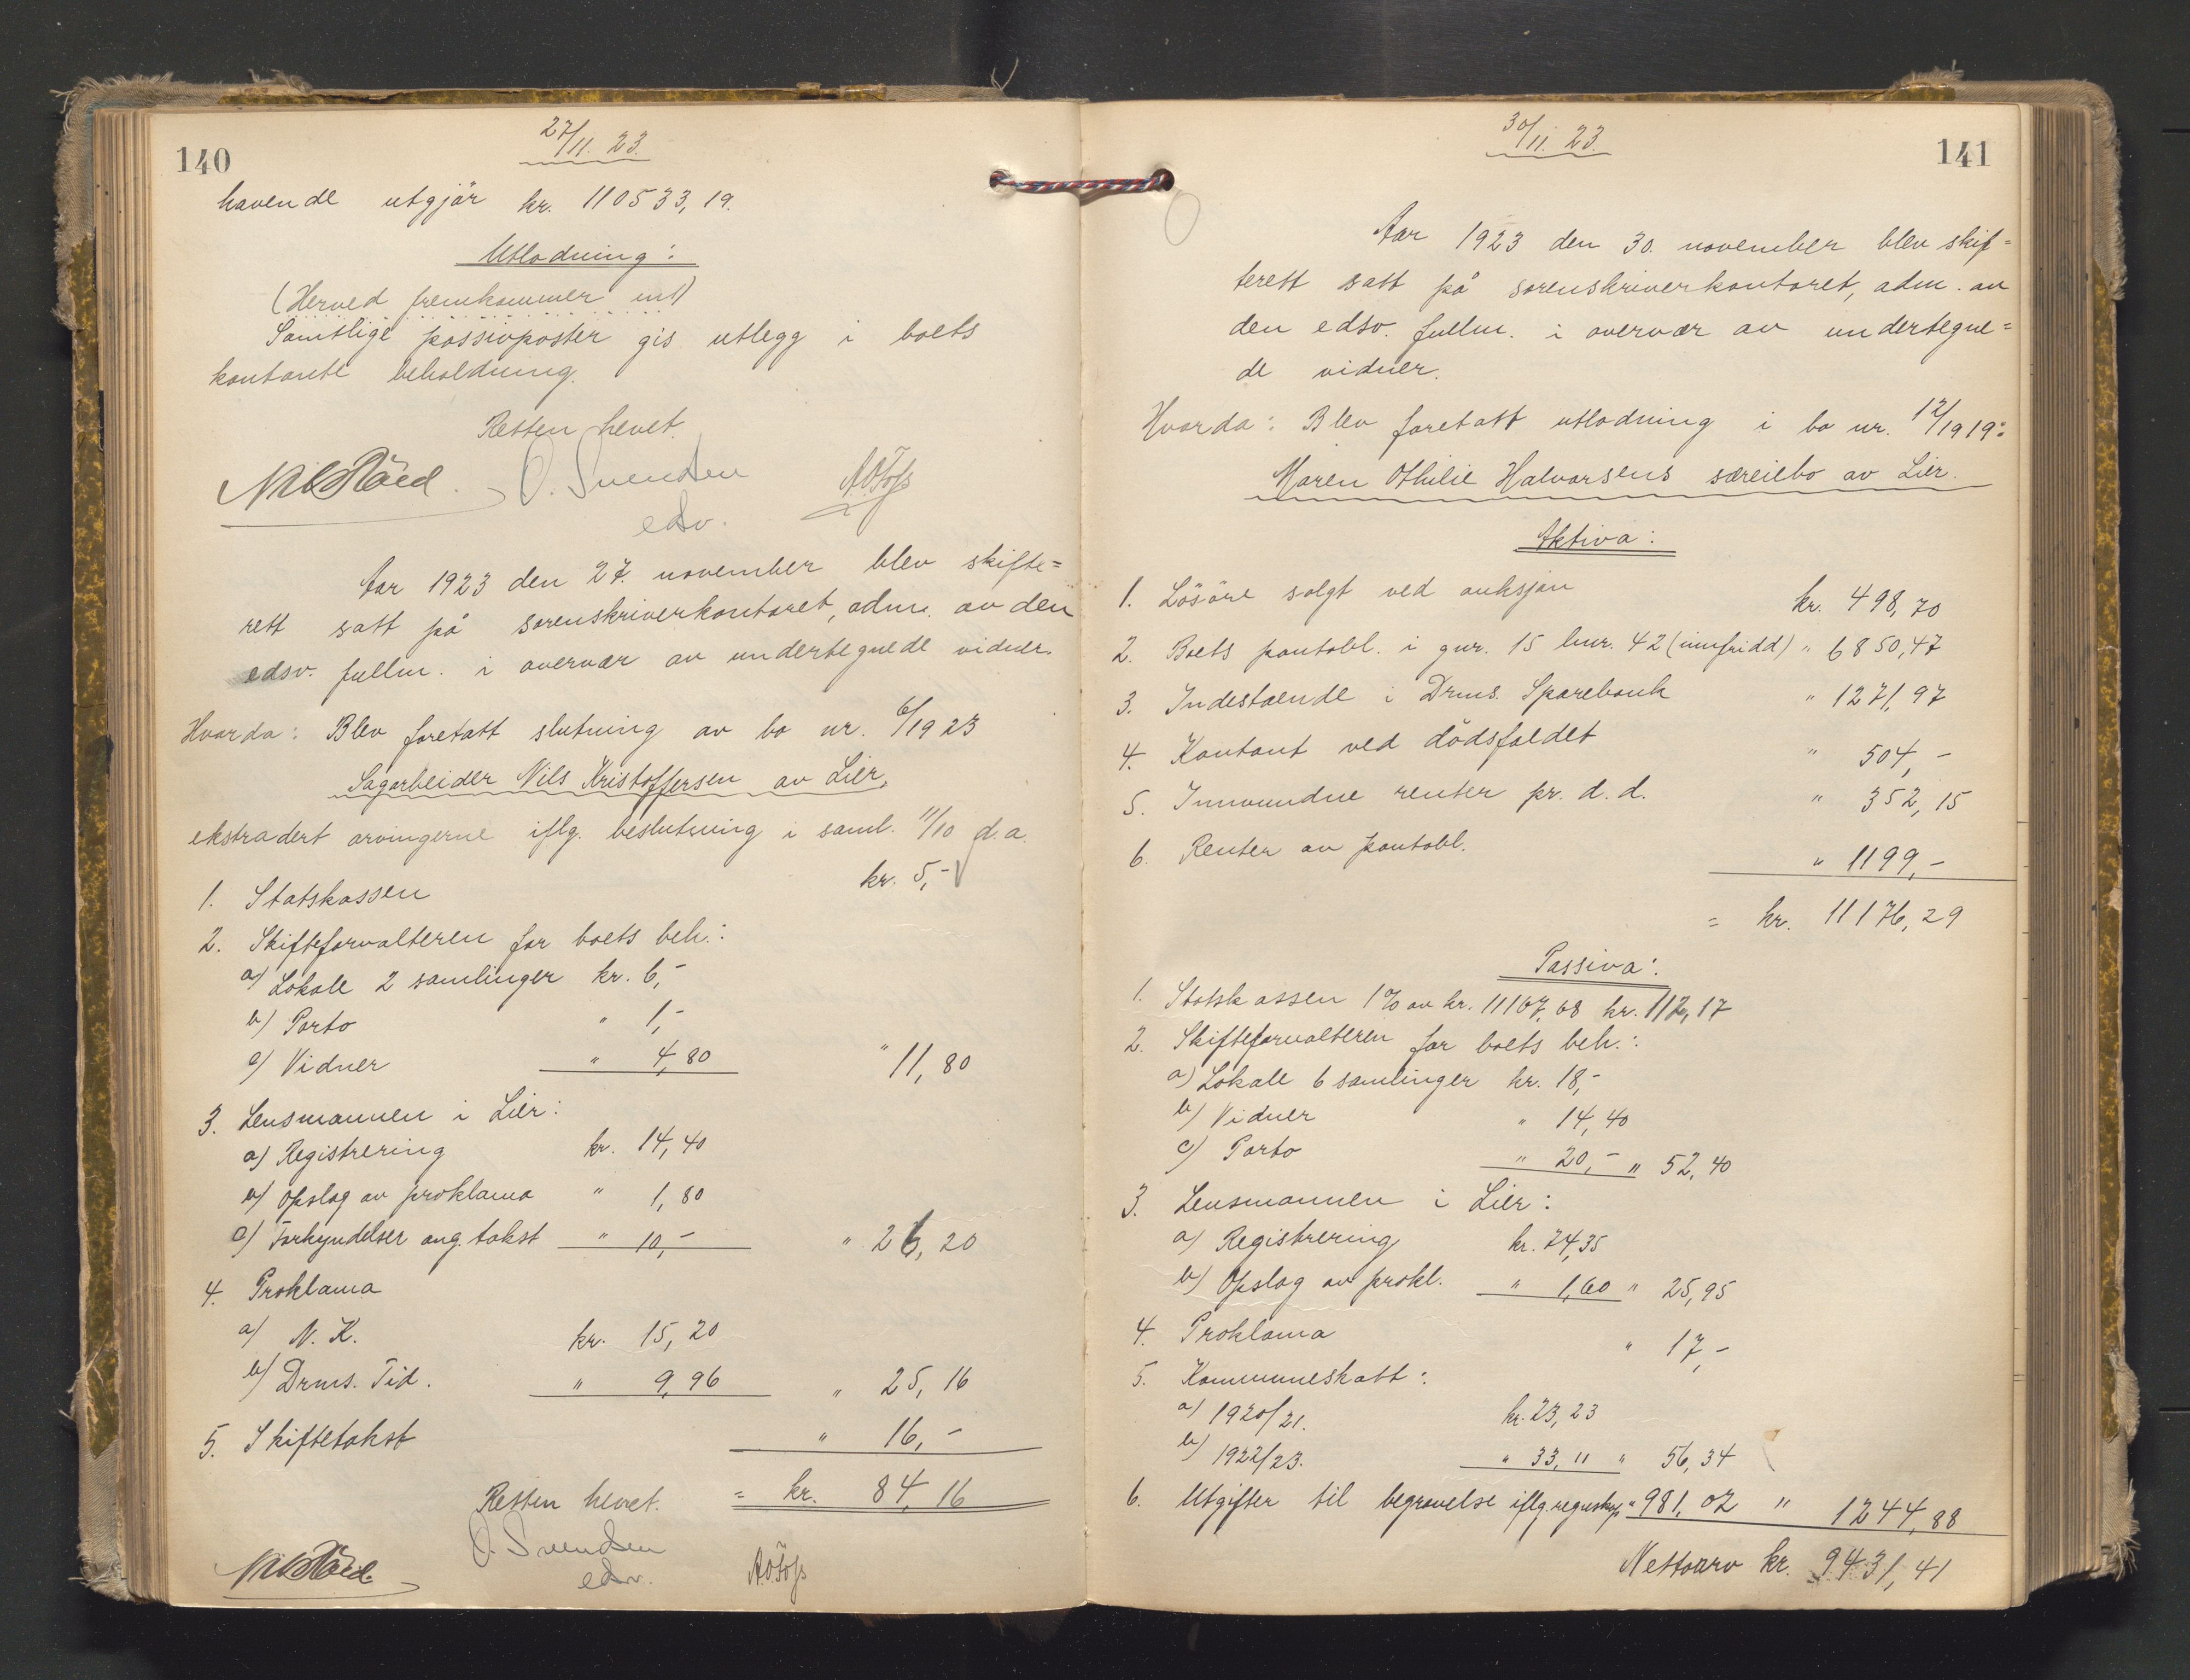 140
27/11. 23.
havende utgjør kr. 110533,19.
Utlodning:
(Herved fremkommer intl)
Samtlige passivposter gis utlegg i boets
kontante beholdning.
Retten hevet.
O. Svendsen
edsv.
Aar 1923 den 27. november blev skifte=
rett satt på sorenskriverkontoret, adm. av den
edsv. fullm. i overvær av undertegnede vidner.
Hvorda: Blev foretatt slutning av bo nr. 6/1923
Sagarbeider Nils Kristoffersen av Lier,
ekstradert arvingerne iflg. beslutning i saml. 11/10 d.a.
1. Statskassen kr. 5,-
2. Skifteforvalteren for boets beh.:
a) Lokale 2 samlinger kr. 6,-
b) Porto " 1,-
c) Vidner " 4,80 " 11,80
3. Lensmannen i Lier:
a) Registrering kr. 14,40
b) Opslag av proklama " 1,80
c) Forkyndelser ang. takst " 10,- " 26,20
4. Proklama
a) N. K. kr. 15,20
b) Drms. Tid. " 9,96 " 25,16
5. Skiftetakst " 16,-
= kr. 84,16
Retten hevet.
O. Svendsen
edsv.
141
30/11. 23.
Aar 1923 den 30. november blev skif=
terett satt på sorenskriverkontoret, adm. av
den edsv. fullm. i overvær av undertegne=
de vidner.
Hvorda: Blev foretatt utlodning i bo nr. 12/1919:
Maren Othilie Halvorsens særeiebo av Lier.
Aktiva:
1. Løsøre solgt ved auksjon kr. 498,70
2. Boets pantobl. i gnr. 15 bnr. 42 (innfridd) " 6850,47
3. Indestaende i Drms. Sparebank " 1271,97
4. Kontant ved dødsfaldet " 504,-
5. Innvundne renter pr. d.d. " 352,15
6. Renter av pantobl. " 1199,-
= kr. 11176,29
Passiva:
1. Statskassen 1% av kr. 11167,68 kr. 112,17
2. Skifteforvalteren for boets beh.:
a) Lokale 6 samlinger kr. 18,-
b) Vidner " 14,40
c) Porto " 20,- " 52,40
3. Lensmannen i Lier:
a) Registrering kr. 24,35
b) Opslag av prokl. " 1,60 " 25,95
4. Proklama " 17,-
5. Kommuneskatt:
a) 1920/21. kr. 23,23
b) 1922/23. " 33,11 " 56,34
6. Utgifter til begravelse iflg. regnskap " 981,02 " 1244,88
Nettoarv kr. 9431,41